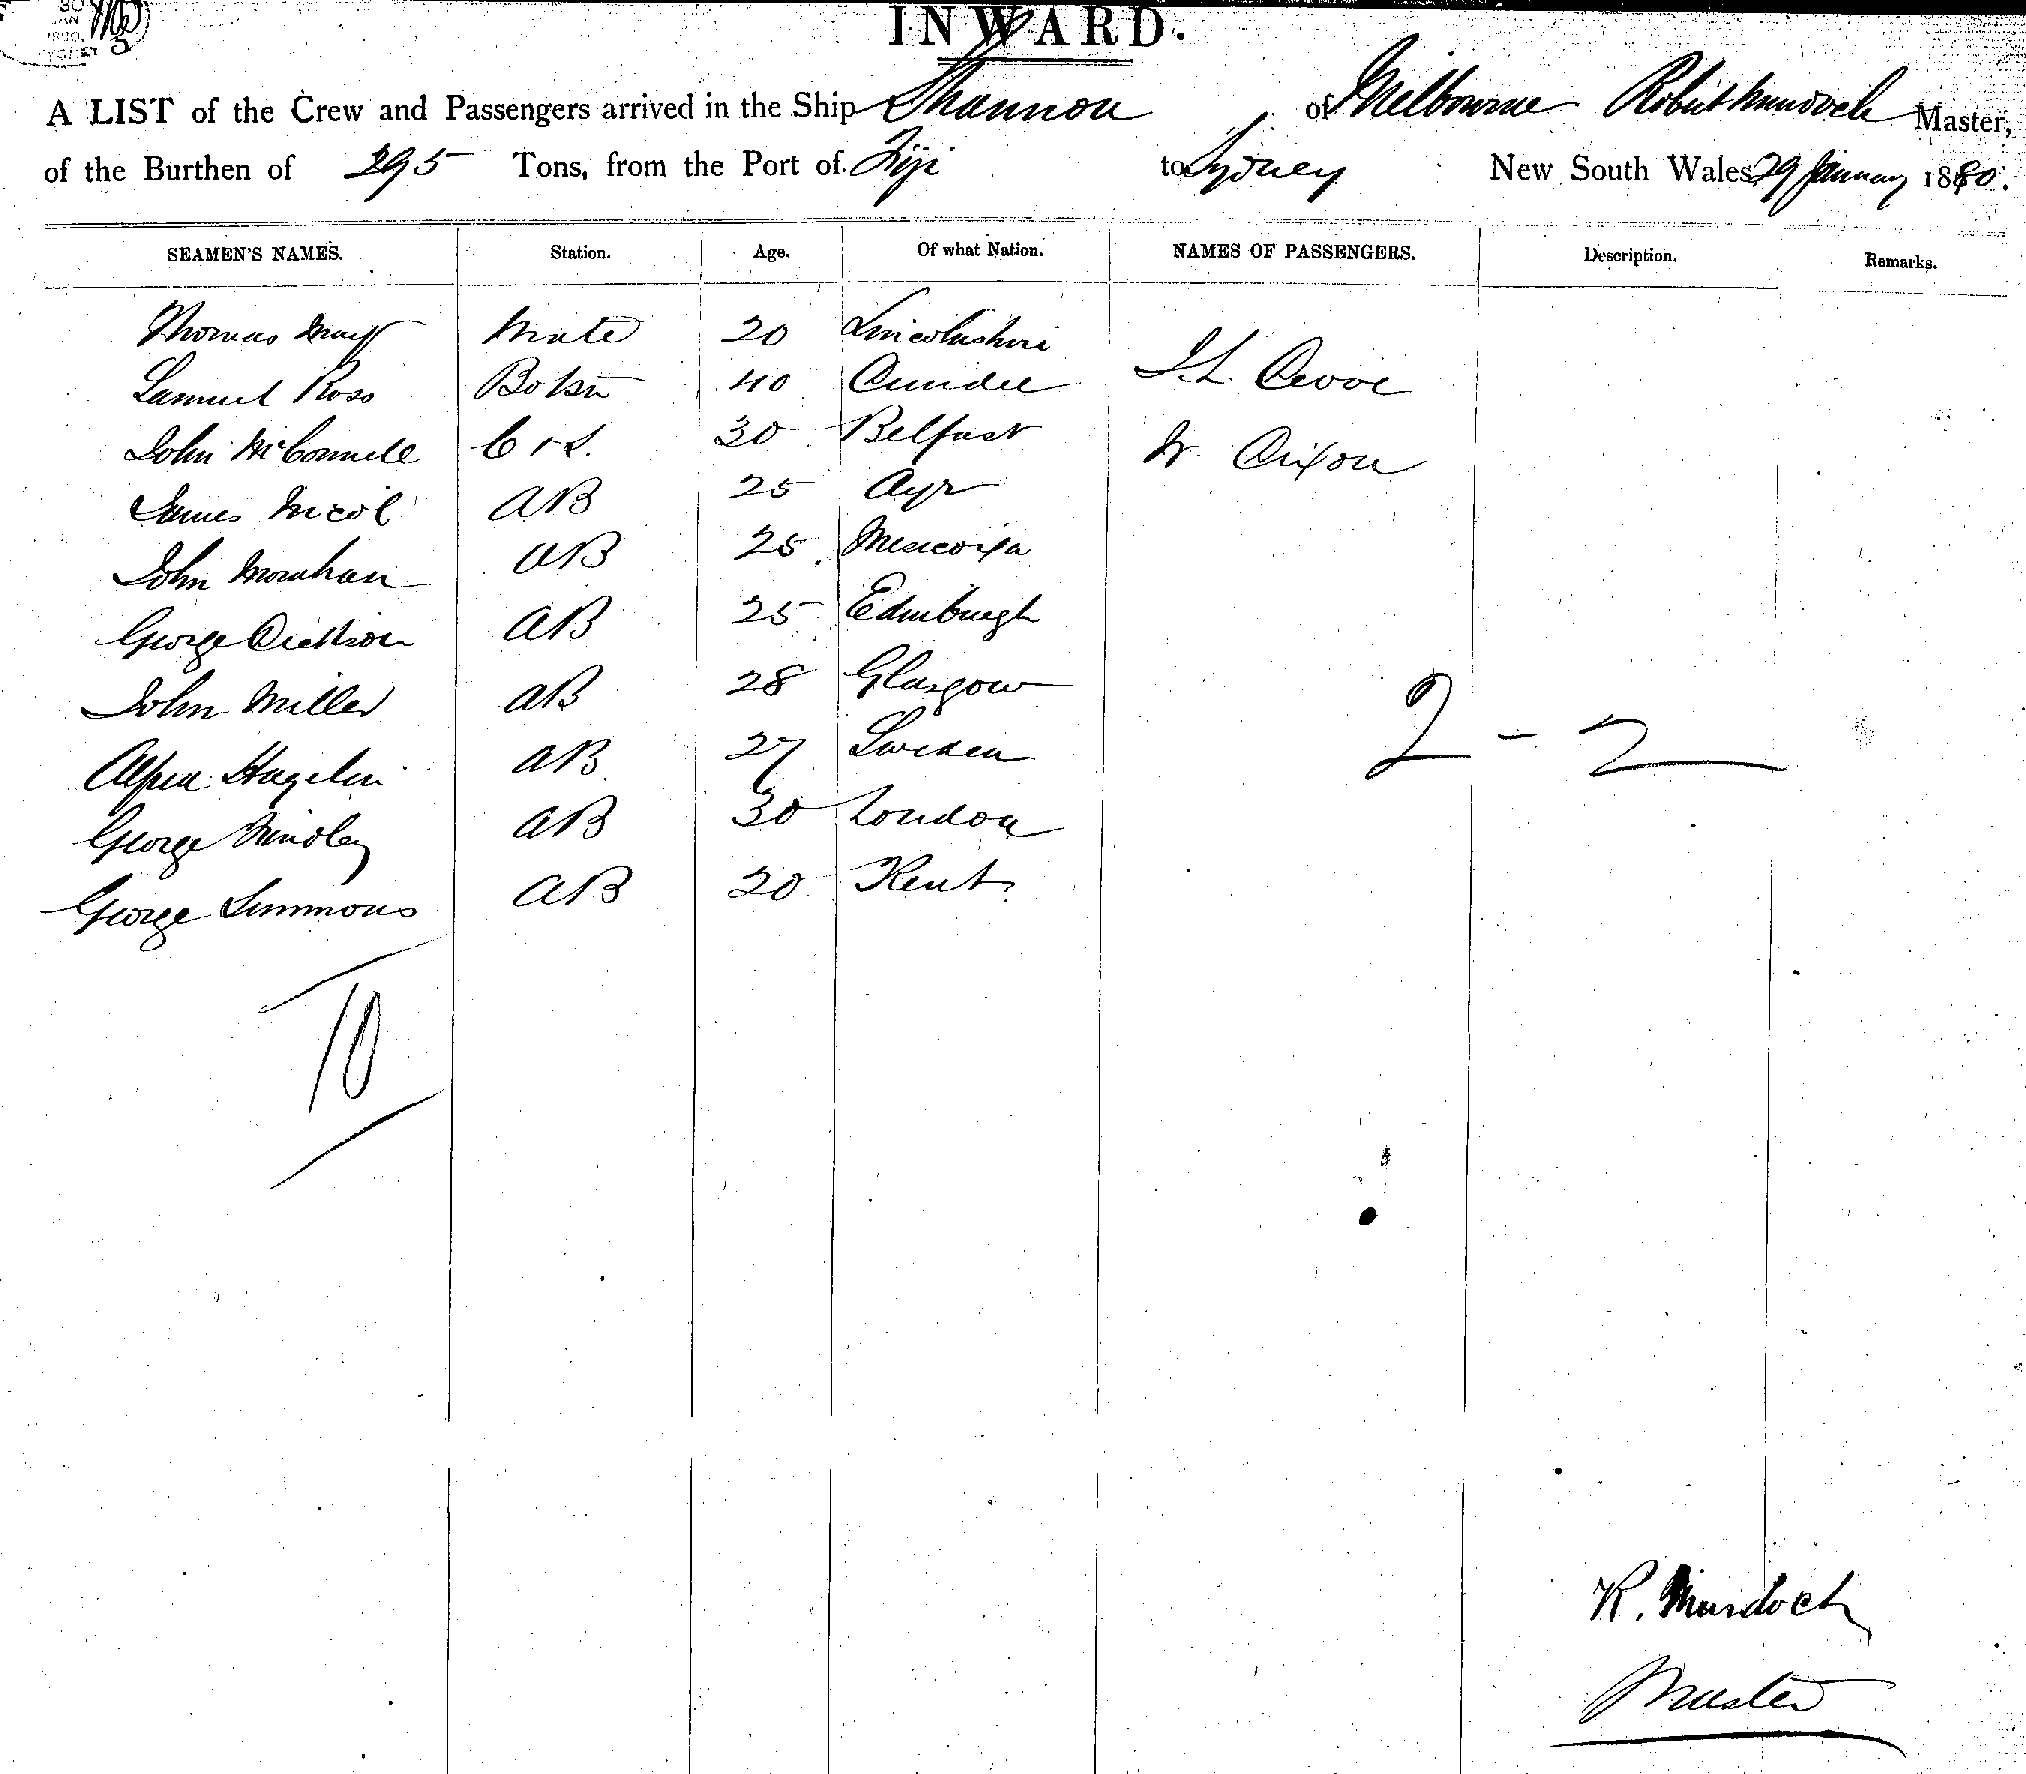 30
JAN
1880
SYDNEY
INWARD.
A LIST of the Crew and Passengers arrived in the Ship Shannon of Melbourne Robert Murdoch Master,
of the Burthen of 295 Tons, from the Port of Fiji to Sydney New South Wales, 29 January 1880.
SEAMEN'S NAMES. Station. Age. Of what Nation. NAMES OF PASSENGERS. Description. Remarks.
Thomas Mate 20 Lincolnshire
Samuel Ross Botsn 40 Dundee
J. L.
John McConnell C & S. 30 Belfast
W. Dixon
James Nicol AB 25 Ayr
John Monahan AB 25
George Dickson AB 25 Edinburgh
John Miller AB 28 Glasgow
2 - 2
Alfred Hagelin AB 27 Sweden
George AB 30 London
George Simmons AB 20 Kent
10
R. Murdoch
Master